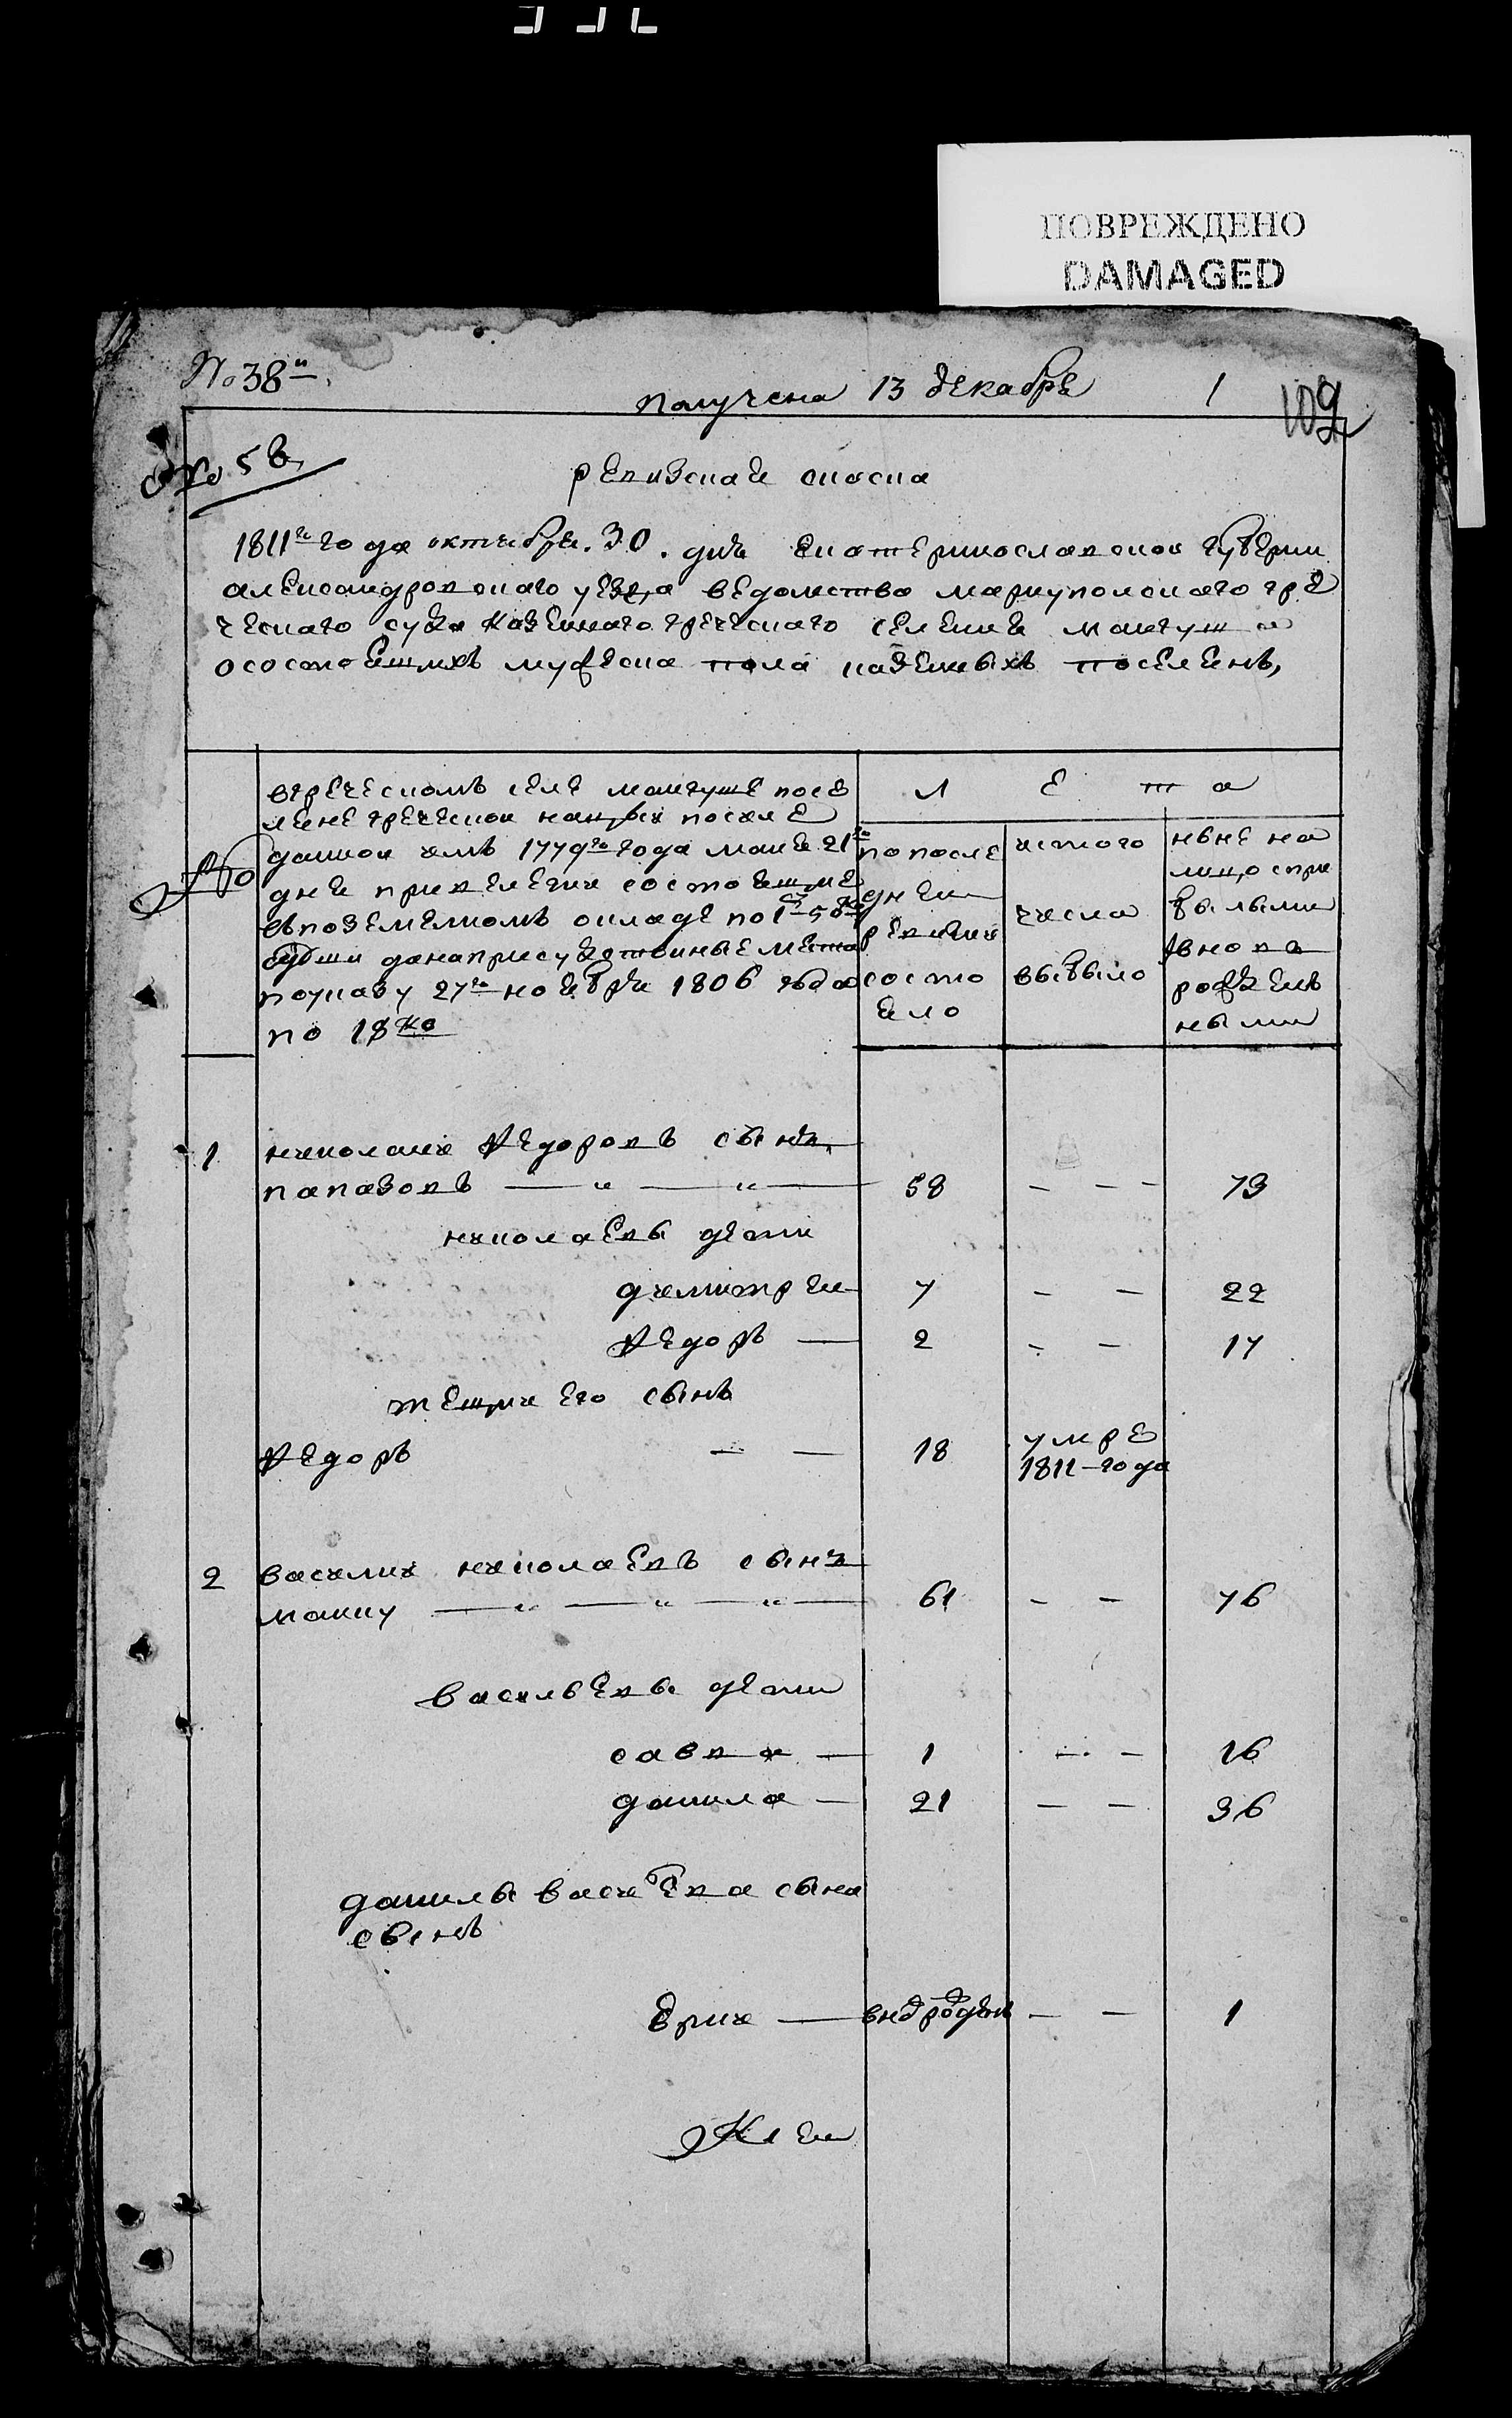 ПОВРЕЖДЕНО
DAMAGED
№ 38
получена 13 декабре 1
102
№ 5
ревизская скаска
1811го года октября 30 дня екатеринославской губернии
александровскаго уезда ведомства мариуполскаго гре
ческаго суда казеннаго греческаго селения мангуша
о состоящихъ мужеска пола казенныхъ поселянъ,
№
вгреческомъ селе мангуше посе
ляне греческой нацыи посиле
данной имъ 1779го года маия 21го
дня привелегии состоящие
впоземелномъ окладе по
на присудственные места
поуказу 27го ноября 1806 года
по 18 ко
л е т а
попосле
дней
ревизии
состо
яло
истого
числа
выбыло
ныне на
лицо спри
былыми
вновь
рожден
ными
1 николаи федоровъ сынъ
папазовъ 58 — — 73
николаевы дети
димитрей 7 — — 22
федоръ — 2 — — 17
тещи его сынъ
федоръ — — 18 умре
1811 года
2 василии николаевъ сынъ
макку 61 — — 76
васильевы дети
савва — 1 — — 16
данила — 21 — — 36
данилы васильева сына
сынъ
юрии — — — 1